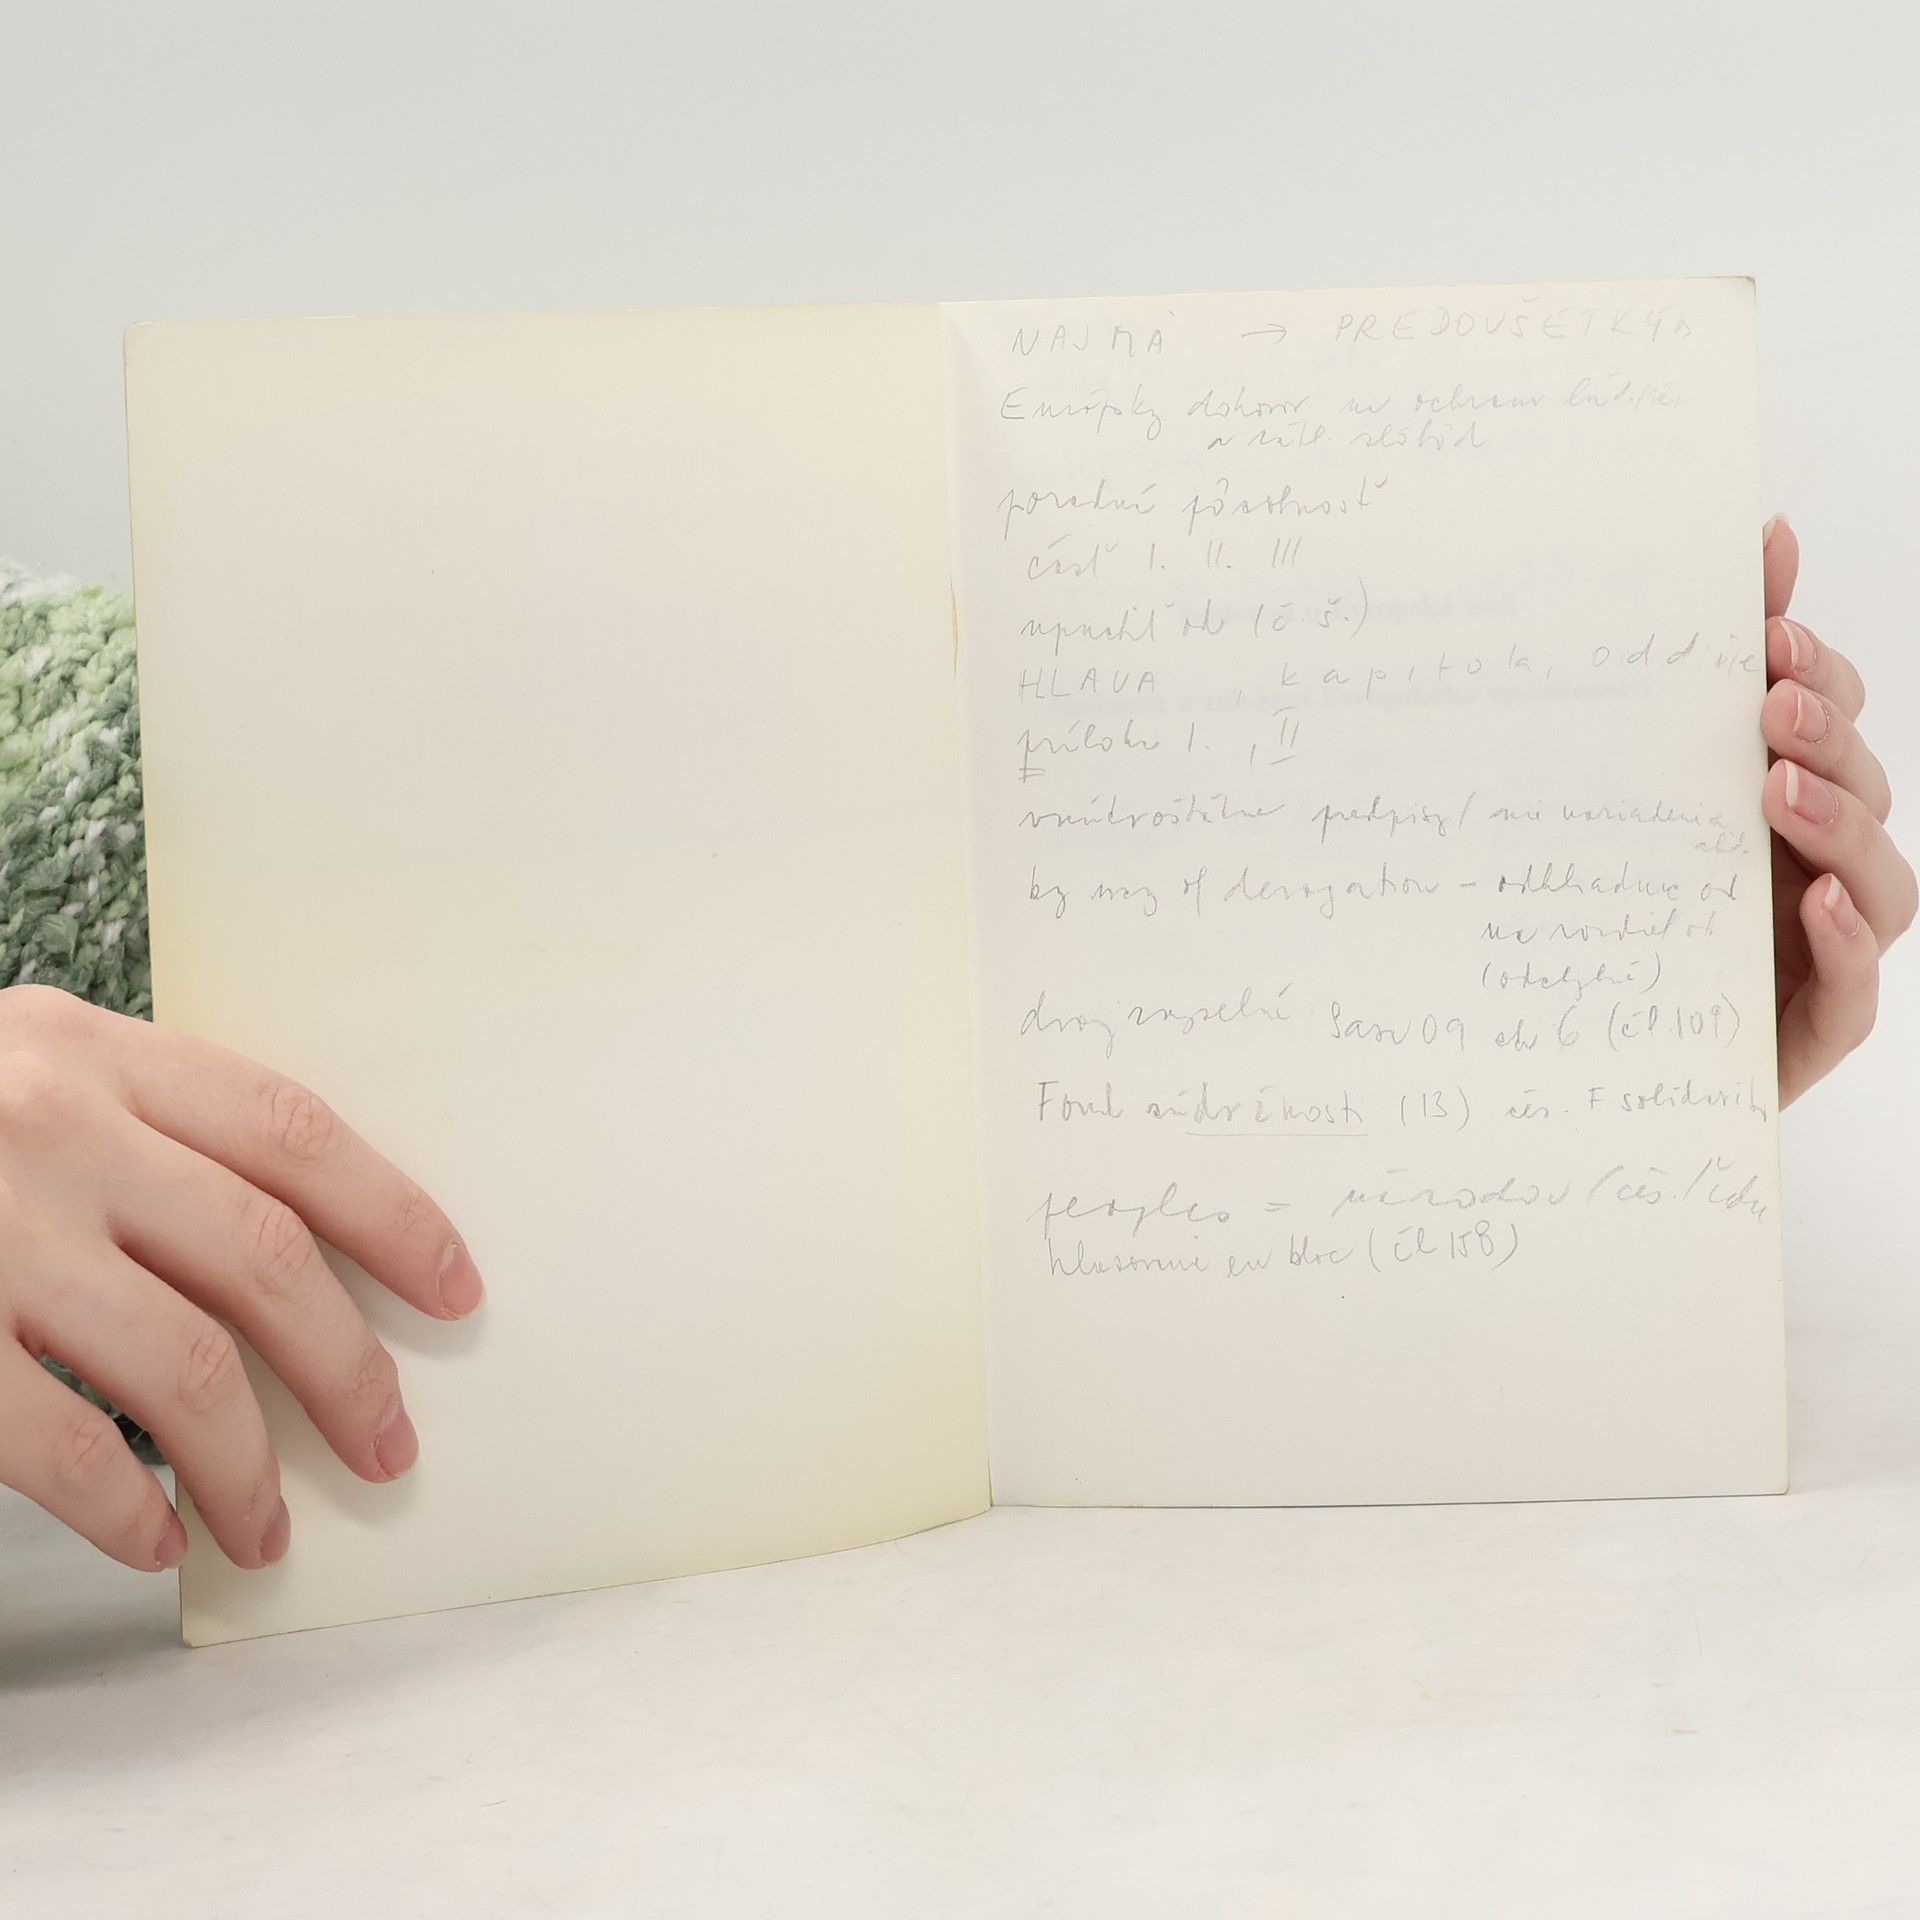 NAJMÄ → PREDOVŠETKÝM
Európsky dohovor na ochranu ľud. práv
a zákl. slôbod
poradná pôsobnosť
časť I. II. III.
upustiť od (č. š.)
HLAVA , kapitola, oddiel
príloha I. , II
vnútroštátne predpisy / nie nariadenia
by way of derogation – odhliadnuc od
na rozdiel od
(odchylne)
(čl. 109)
Fond súdržnosti (13) čes. F solidarity
peoples = národov / čes.
hlasovanie en bloc (čl 158)